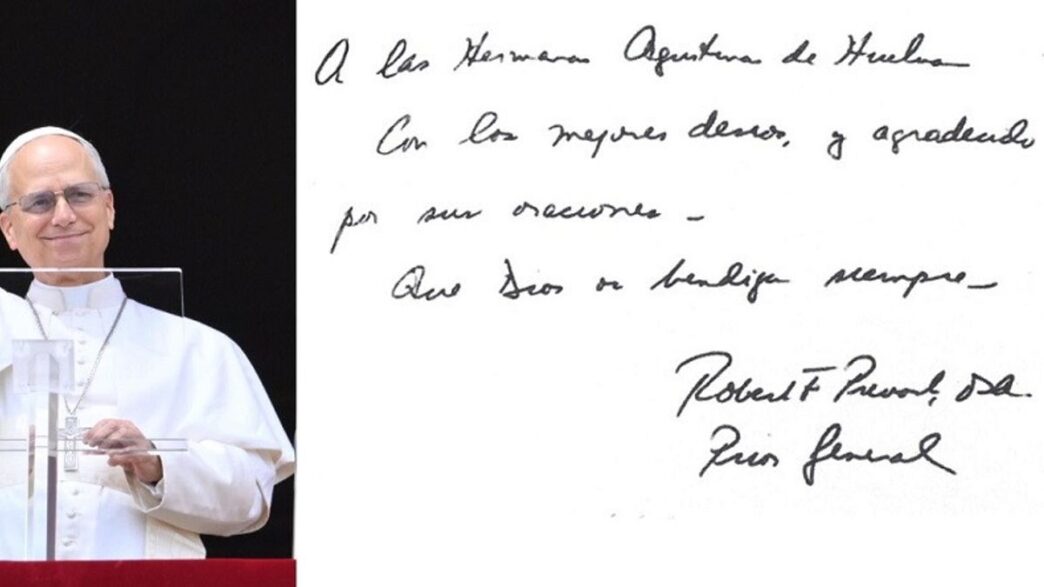 A las Hermanas Agustinas de Huelva
Con los mejores deseos, y agradeciendo
por sus oraciones -
Que Dios os bendiga siempre -
Robert F. Prevost, osa.
Prior General